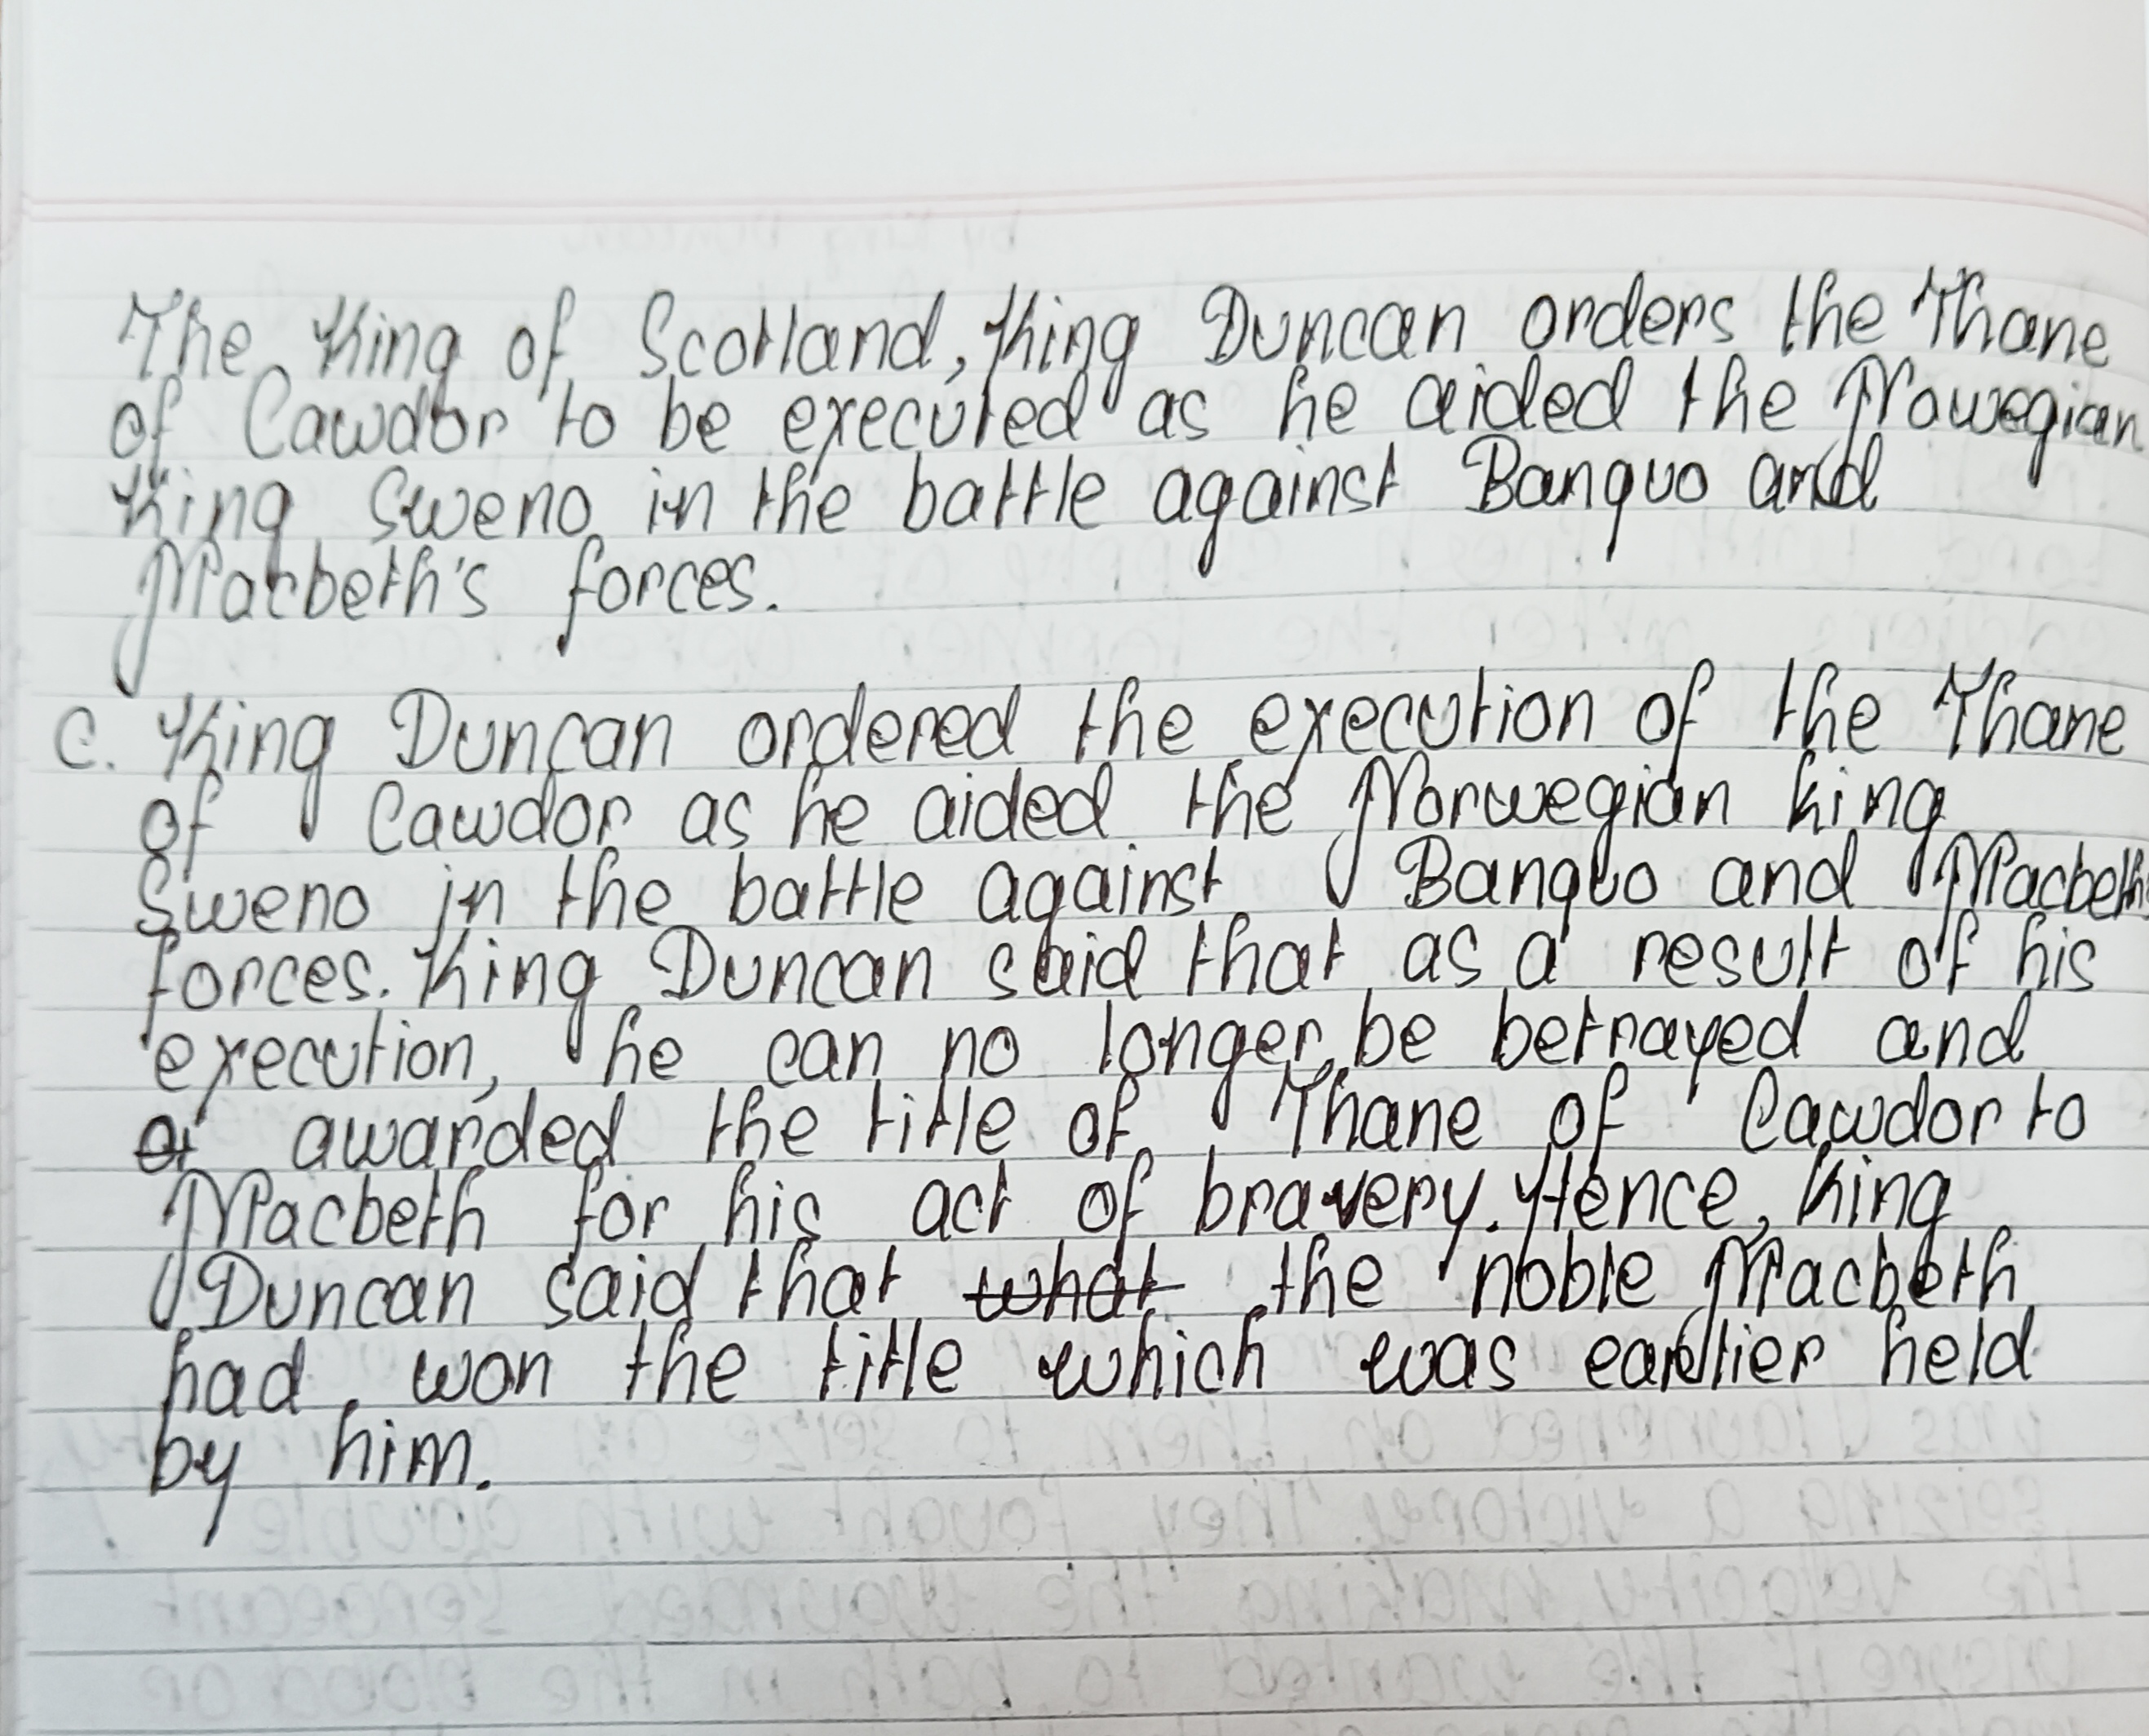 The King of Scotland, King Duncan orders the Thane
of Cawdor to be executed as he aided the Nowegian
King Sweno in the battle against Banquo and
Macbeth's forces.
C. King Duncan ordered the execution of the Thane
of Cawdor as he aided the Norwegian king
Sweno in the battle against Banquo and Macbeth's
forces. King Duncan said that as a result of his
execution, he can no longer be betrayed and
awarded the title of Thane of Cawdor to
Macbeth for his act of bravery. Hence, King
Duncan said that what the noble Macbeth
had won the title which was earlier held
by him.